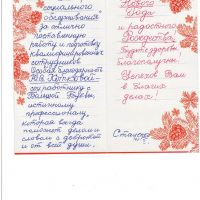 социального
обслуживания"
за отлично
поставленную
работу и подготовку
квалифицированных
сотрудников.
Особая благодарность
соц. работнику с
Большой Буквы,
истинному
профессионалу,
которая всегда
поможет делами и
словом с добротой
и от всей души.
Нового
Года
и радостного
Рождества!
Будьте здоровы,
благополучны.
Успехов Вам
в благих
делах!